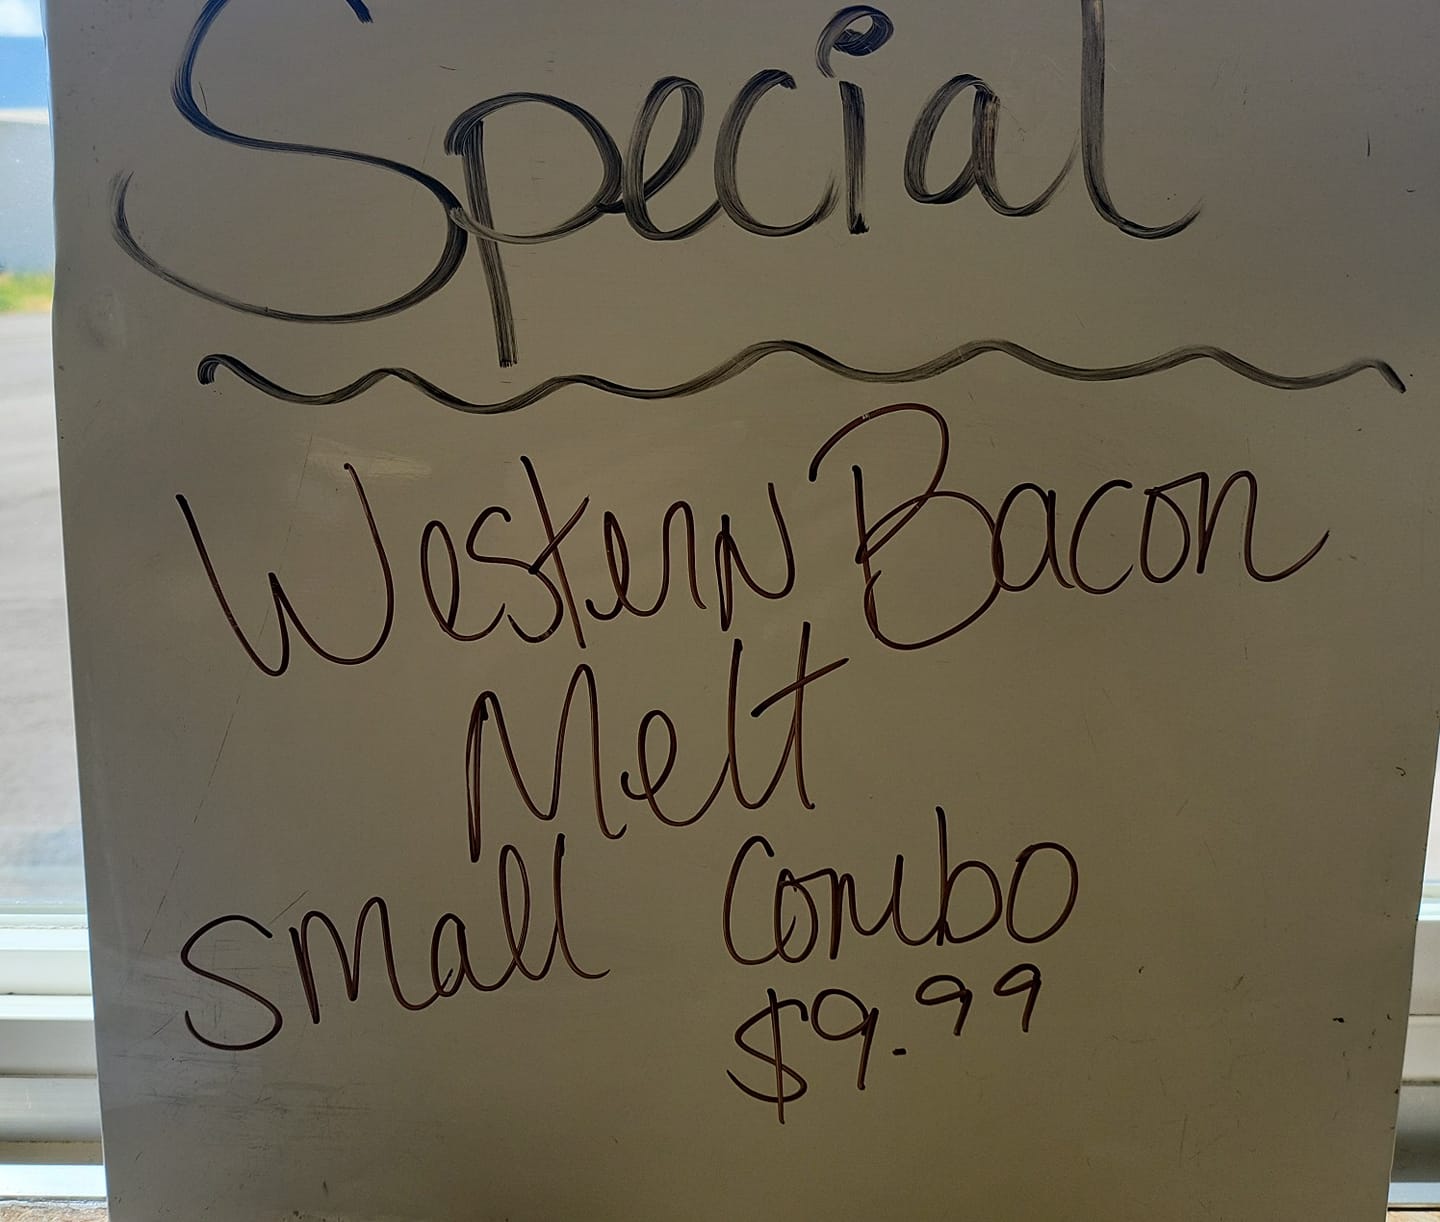 Special
Western Bacon
Melt
Small Combo
$9.99